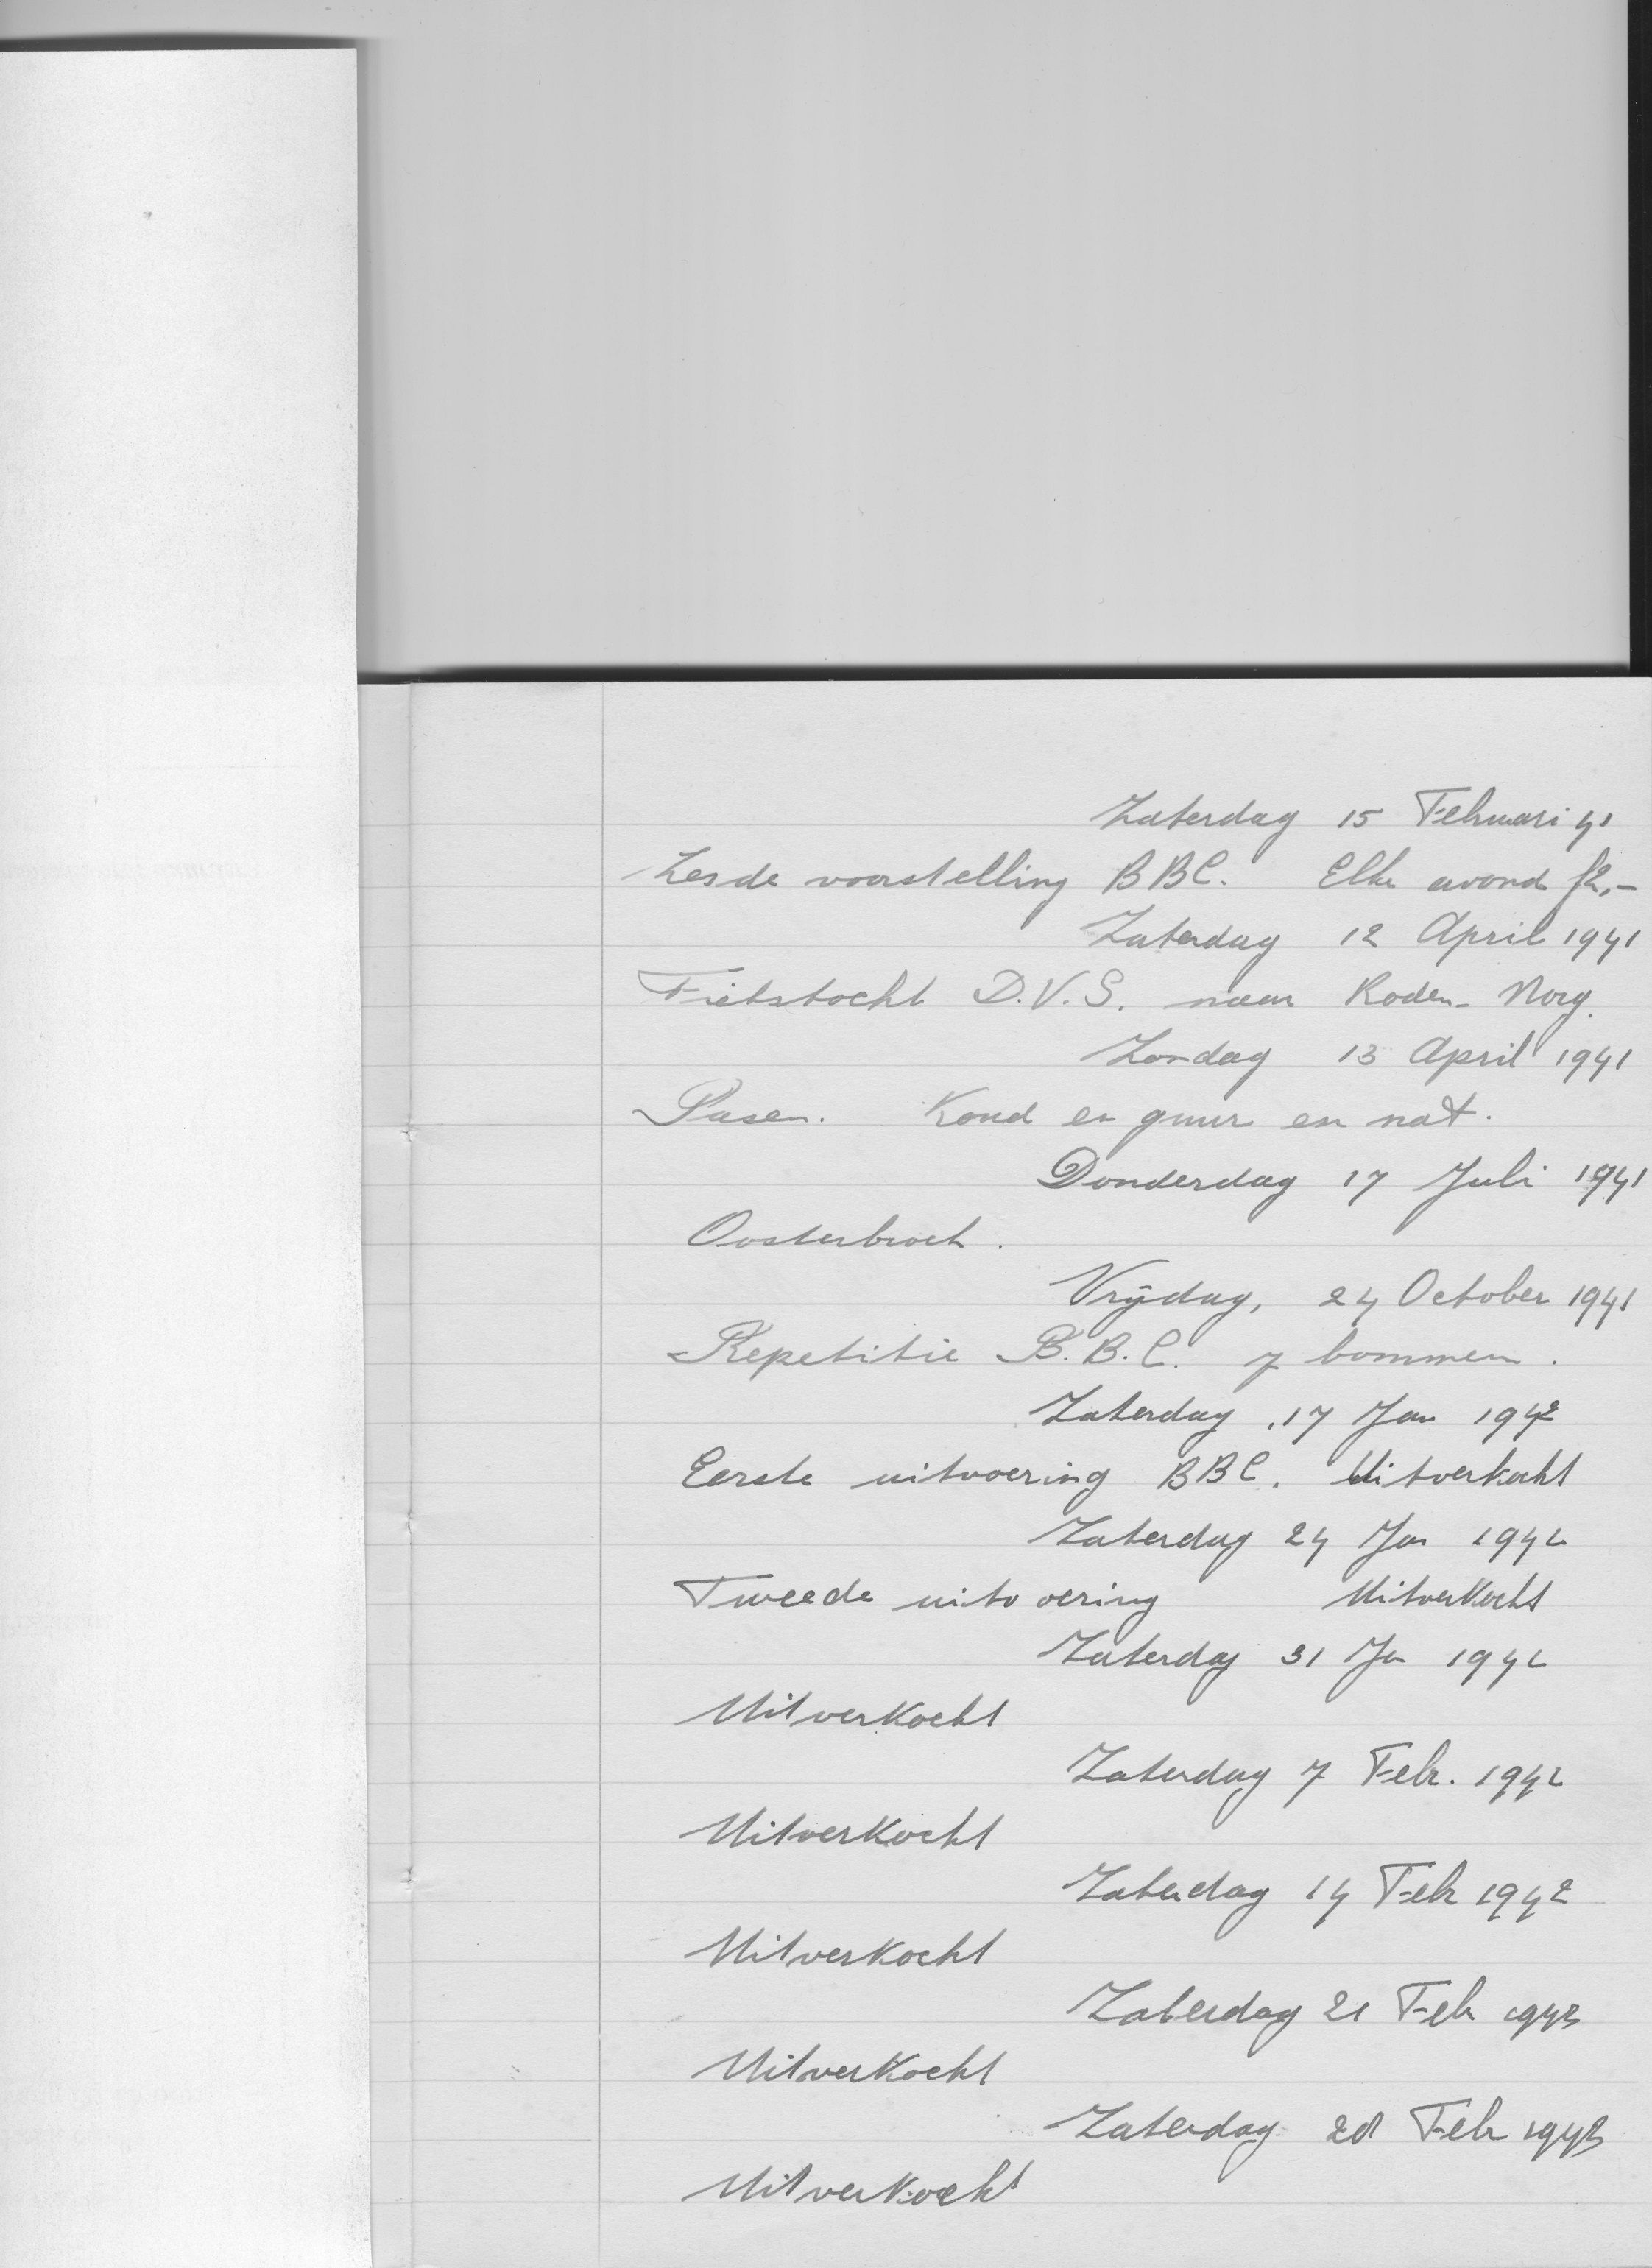 Zaterdag 15 Februari 41
Zesde voorstelling BBC. Elke avond f2,-
Zaterdag 12 April 1941
Fietstocht D.V.S. naar Roden-Norg.
Zondag 13 April 1941
Pasen. Koud en guur en nat.
Donderdag 17 Juli 1941
Oosterbroek.
Vrijdag, 24 October 1941
Repetitie B.B.C. 7 bommen.
Zaterdag, 17 Jan 1942
Eerste uitvoering BBC. Uitverkocht
Zaterdag 24 Jan 1942
Tweede uitvoering Uitverkocht
Zaterdag 31 Ja 1942
Uitverkocht
Zaterdag 7 Febr. 1942
Uitverkocht
Zaterdag 14 Feb 1942
Uitverkocht
Zaterdag 21 Feb 1942
Uitverkocht
Zaterdag 28 Feb 1942
Uitverkocht